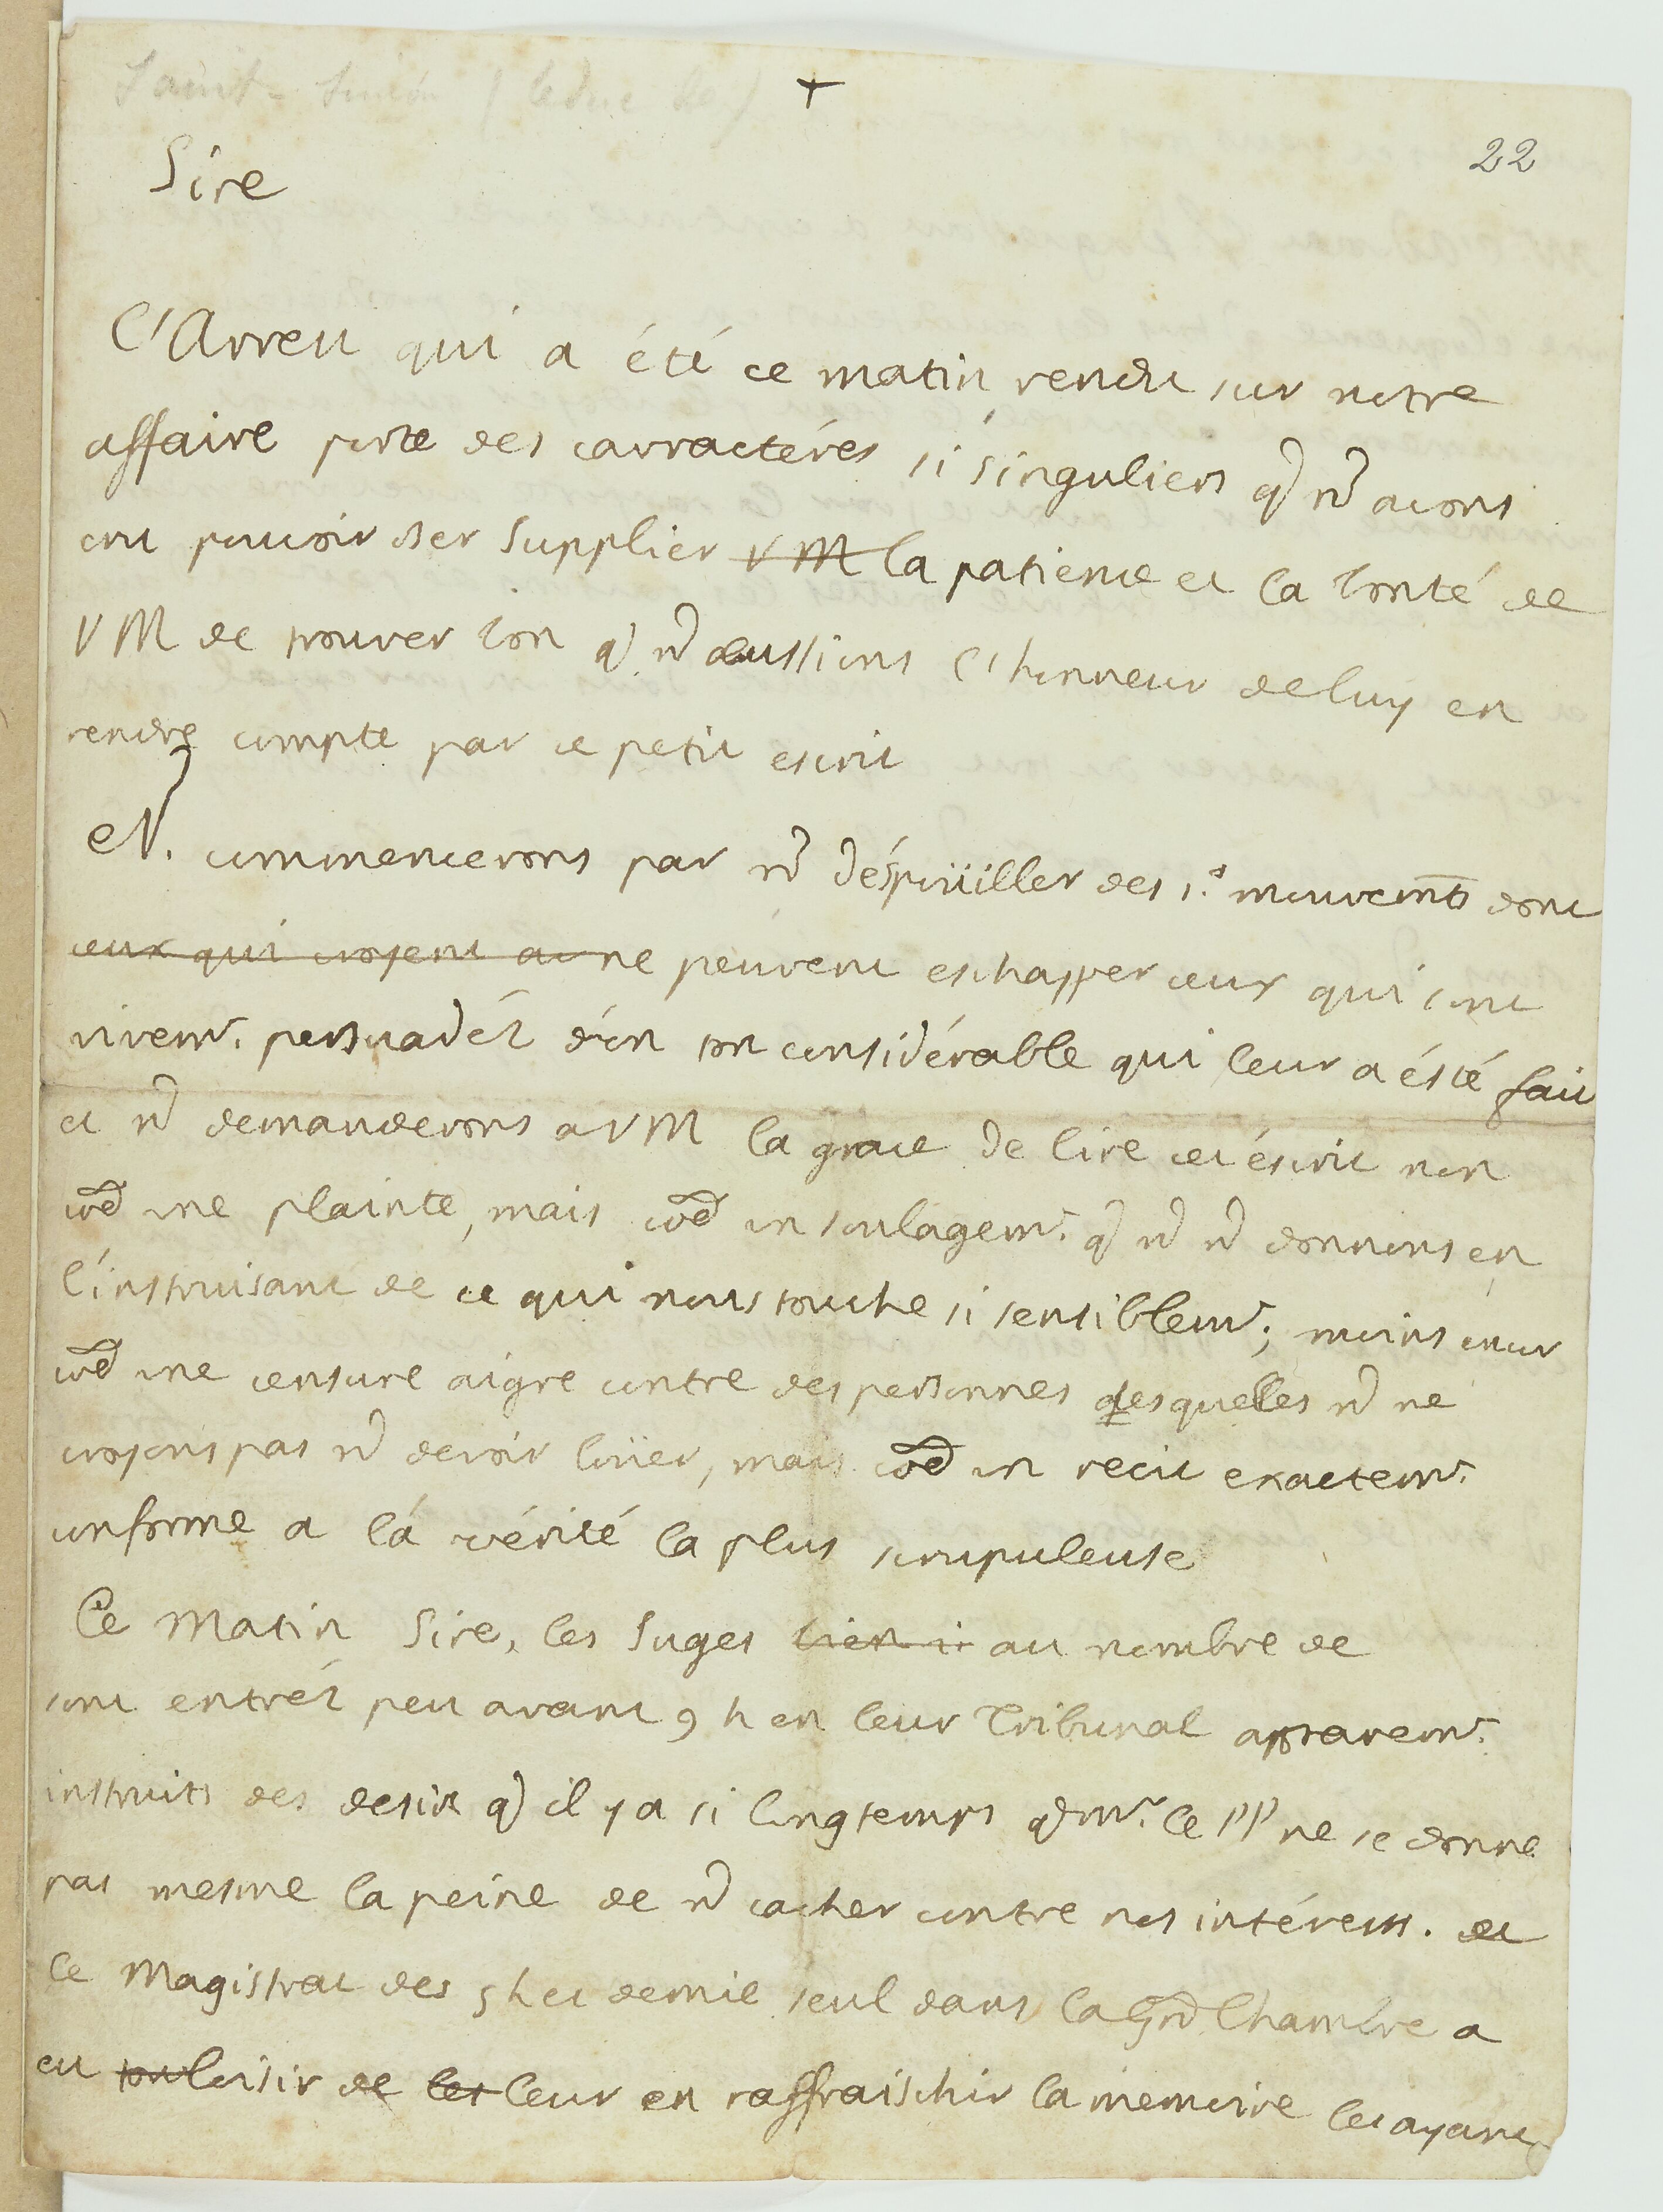 Saint-Simon (le duc de)
+
22
Sire
L'Arrest qui a été ce matin rendu sur notre
affaire porte des carractéres si singuliers q nō avons
cru pouvoir oser supplier V M la patience et la bonté de
V M de trouver bon q nō eussions l'honneur de luy en
rendre compte par ce petit escrit
N. commencerons par nō déspoüiller des 1.ers mouvemts dont
ceux qui croyent av ne peuvent eschapper ceux qui sont
vivemt. persuadéz d'un tort considérable qui leur a ésté fait
et nō demanderons a V M la grace de lire cet éscrit non
coē une plainte, mais coē un soulagemt. q nō nō donnons en
l'instruisant de ce qui nous touche si sensiblemt; moins encor
coē une censure aigre contre des personnes desquelles nō ne
croyons pas nō devoir loüer, mais coē un recit exactemt.
conforme a la vérité la plus scrupuleuse
Ce Matin Sire, les Juges bien i au nombre de
sont entréz peu avant 9 h en leur Tribunal apparemt.
instruits des desirs q il y a si longtemps q mr. le PP ne se donne
pas mesme la peine de nō cacher contre nos intérests. et
Ce Magistrat des 5 h et demie seul dans la Grd Chambre a
eu tout loisir de les leur en raffraischir la memoire les ayant